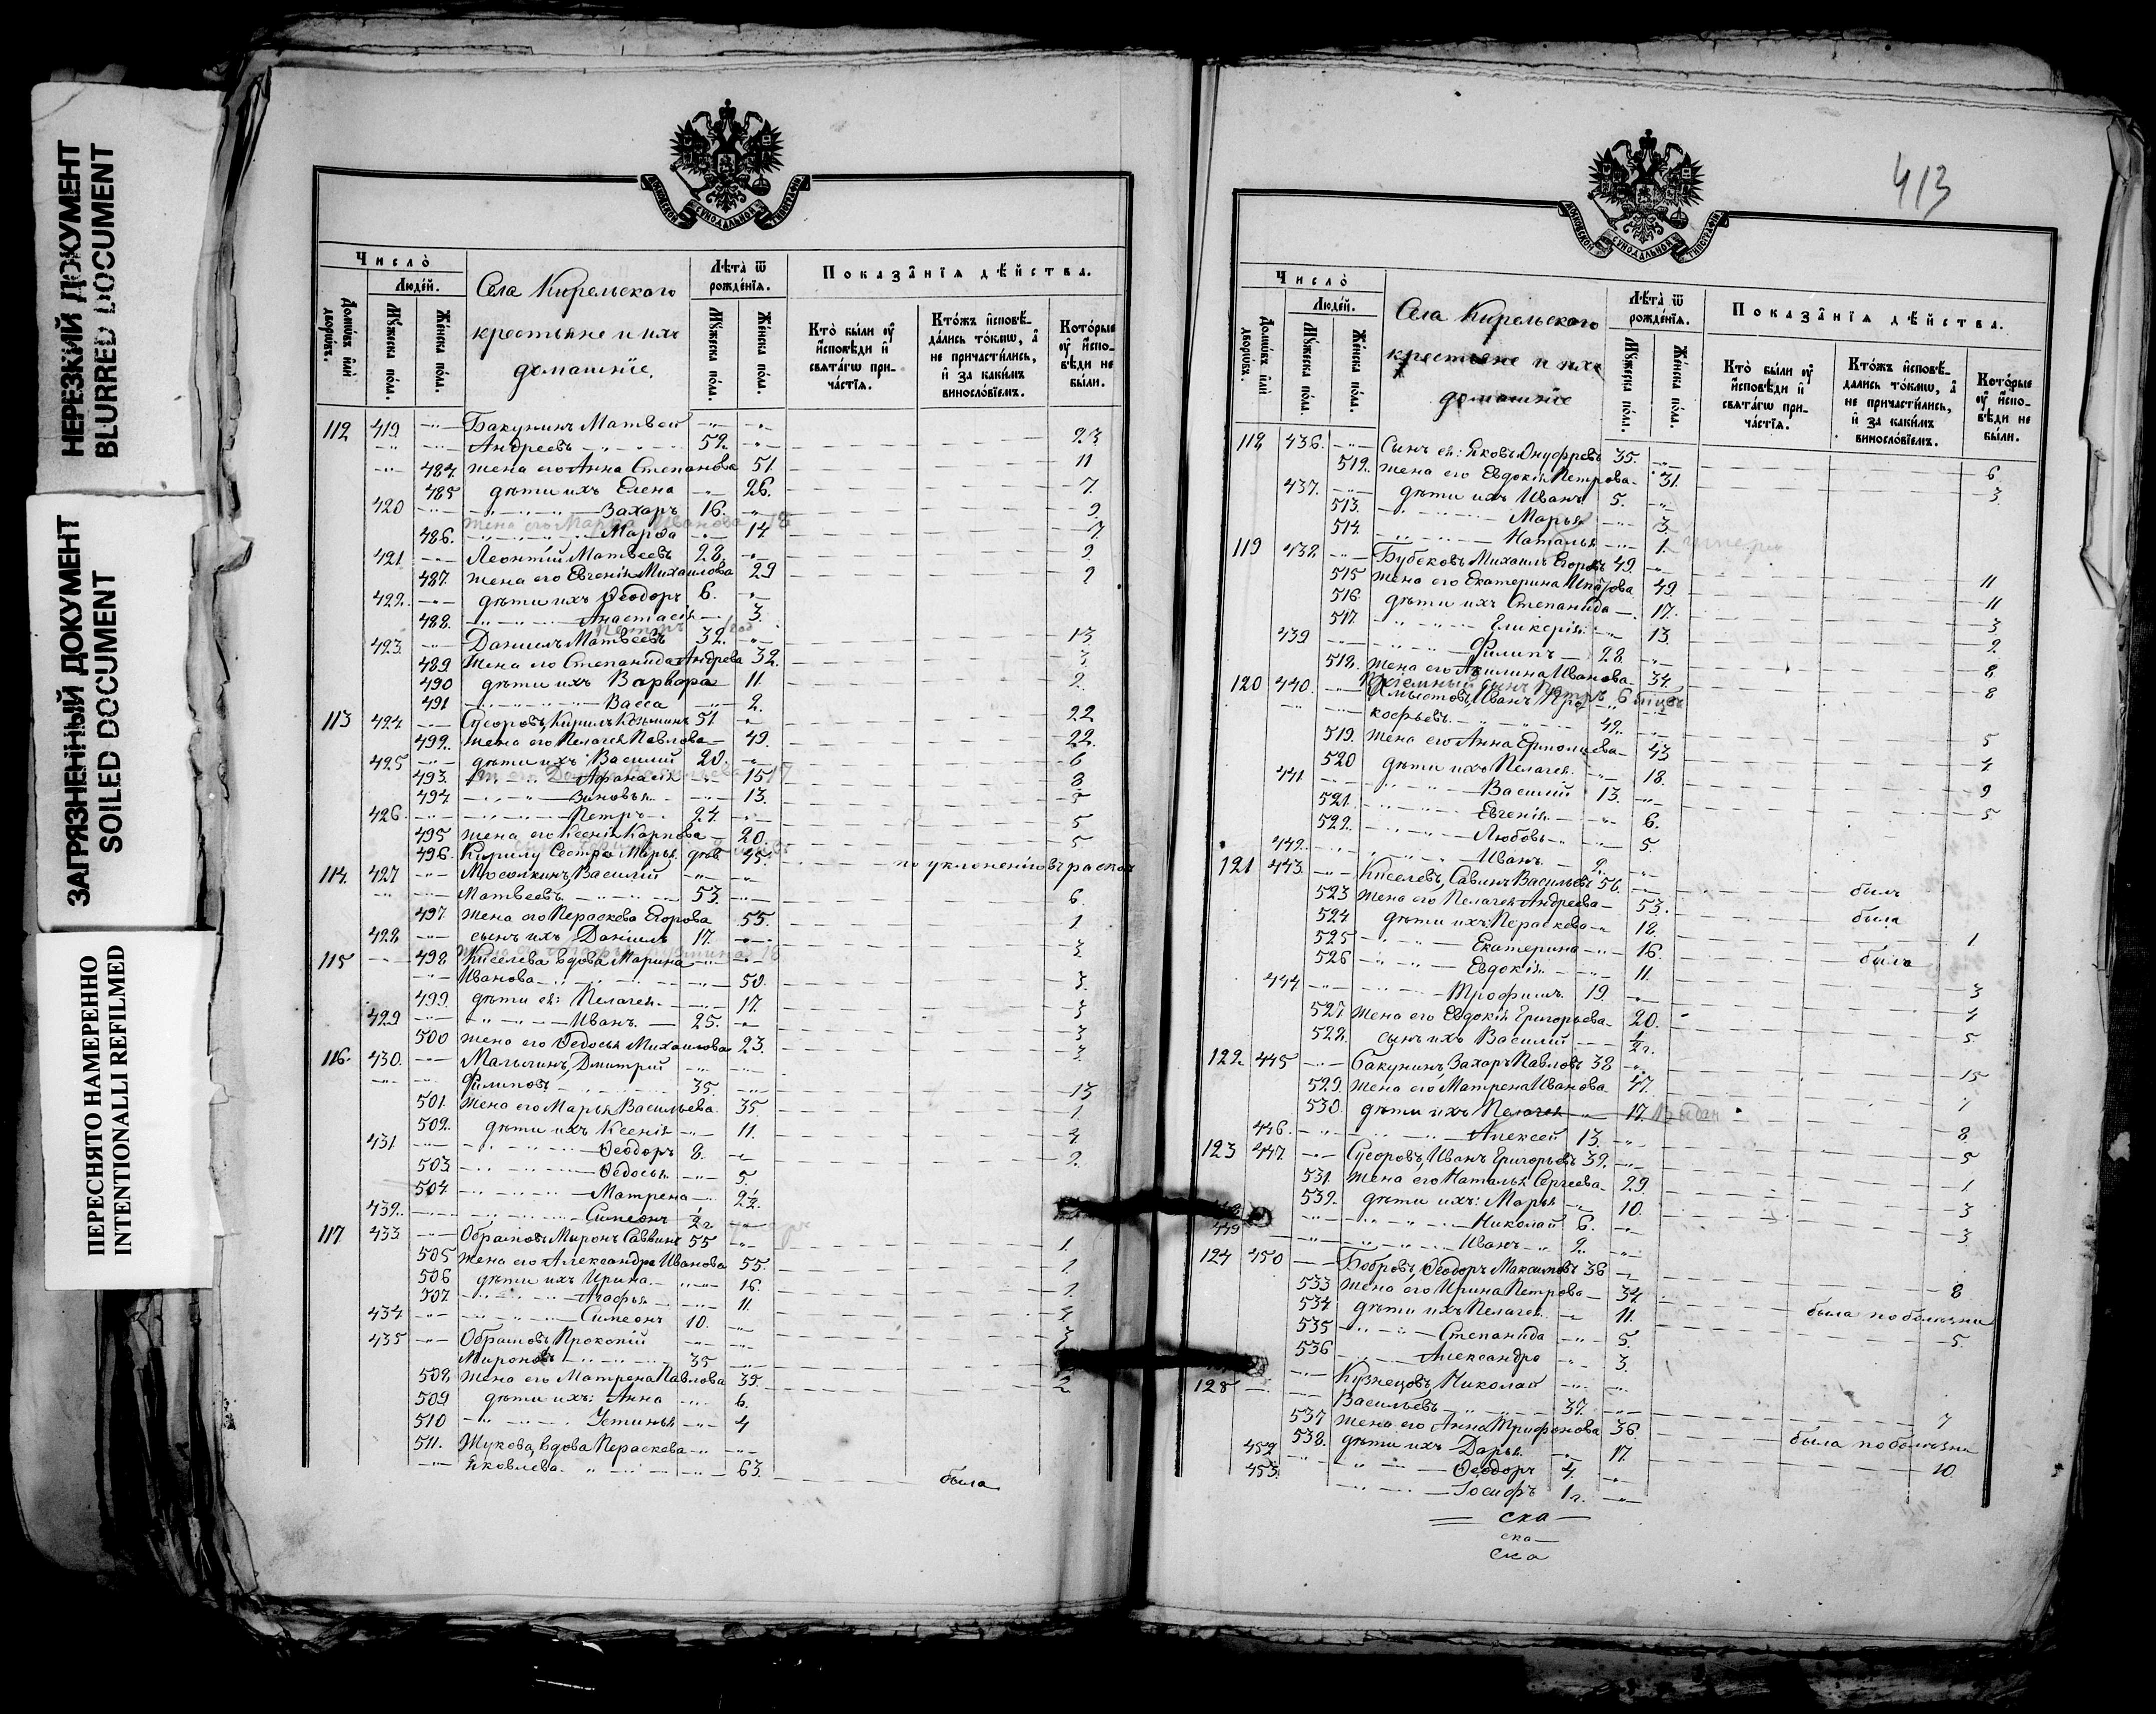 НЕРЕЗКИЙ ДОКУМЕНТ
BLURRED DOCUMENT
ЗАГРЯЗНЕННЫЙ ДОКУМЕНТ
SOILED DOCUMENT
ПЕРЕСНЯТО НАМЕРЕННО
INTENTIONALLI REFILMED
МОСКОВСКОЙ СѴНОДАЛЬНОЙ ТИПОГРАФІИ
Число̀
Людей.
Домѡвъ илѝ дворѡвъ.
Мꙋжеска пола.
Женска пола.
Села Кирельскаго
крестьяне и ихъ
домашніе.
Лѣта̀ ѿ рожденїѧ.
Мꙋжеска пола.
Женска пола.
Показанїѧ дѣйства.
Кто̀ были ᲂу҆ исповѣди и҆ свѧтагѡ причастїѧ.
Ктожъ исповѣдались токмѡ, а҆ не причастились, и҆ за какимъ винословїемъ.
Которые ᲂу҆ исповѣди не были.
112 419 Бакунинъ Матвей
Андреевъ 52. 23
484. жена его Анна Степанова 51. 11
485 дѣти ихъ Елена 26. 7
420 Захаръ 16. 2
жена его Марѳа Иванова 18
486. Марѳа 14 7
421 Леонтій Матвеевъ 28. 2
487. жена его Евгенія Михаилова 29 2
422. дѣти ихъ Ѳеодоръ 6.
488. Анастасія 3.
423. Даніилъ Матвеевъ 32. 13
489 жена его Степанида Андрева 32. 3
490 дѣти ихъ Варвара 11. 2
491 Васса 2.
113 424 Сусоровъ, Кирилъ Козминъ 51 22
492. жена его Пелагея Павлова 49. 22.
425 дѣти ихъ Василій 20. 6
493. Афанасія 15 17 8
494 Зиновья 13. 5
426 Петръ 24. 5
495 жена его Ксенія Карпова 20. 5
496. Кирилу Сестра Марья дѣв. 45. по уклоненію въ расколъ
114. 427 Мосолкинъ, Василій
Матвеевъ 53. 6
497. жена его Пераскева Егорова 55. 1
428 сынъ ихъ Даніилъ 17. 3
115 498 Киселева вдова Марина
Иванова 50. 3.
499. дѣти ея: Пелагея 17. 3
429 Иванъ 25. 3
500 жена его Ѳедосья Михаилова 23. 3.
116. 430. Малышнъ, Дмитрій
Филиповъ 35. 13
501. жена его Марья Васильева 35. 1
502. дѣти ихъ Ксенія 11. 4
431 Ѳеодоръ 8. 2.
503 Ѳедосья 5.
504. Матрена 2½
432. Симеонъ ½ г
117 433 Обрамовъ Миронъ Саввинъ 55 1.
505 жена его Александра Иванова 55. 1
506 дѣти ихъ Ирина 16. 1
507. Агафья 11. 4
434 Симеонъ 10. 3
435 Обрамовъ Прокопій
Мироновъ 35
508 жена его Матрена Павлова 35. 2
509 дѣти ихъ: Анна 6.
510 Устинья 4
511. Жукова, вдова Пераскева
Яковлева 63. была
413
МОСКОВСКОЙ СѴНОДАЛЬНОЙ ТИПОГРАФІИ
Число̀
Людей.
Домѡвъ илѝ дворѡвъ.
Мꙋжеска пола.
Женска пола.
Села Кирельскаго
крестьяне и ихъ
домашніе
Лѣта̀ ѿ рожденїѧ.
Мꙋжеска пола.
Женска пола.
Показанїѧ дѣйства.
Кто̀ были ᲂу҆ исповѣди и҆ свѧтагѡ причастїѧ.
Ктожъ исповѣдались токмѡ, а҆ не причастились, и҆ за какимъ винословїемъ.
Которые ᲂу҆ исповѣди не были.
118 436. Сынъ ея: Яковъ Онуфревъ 35. 6
512. жена его Евдокія Петрова 31. 3
437. дѣти ихъ Иванъ 5.
513. Марья 3.
514. Наталья 1.
119 438. Бубековъ Михаилъ Егоровъ 49. 11
515 жена его Екатерина 49. 11
516. дѣти ихъ Степанида 17. 3
517. Гликерія 13. 2
439 Филипъ 28. 8
518. жена его Акилина Иванова 34. 8
Пріемный сынъ Петръ 6
120 440. Хмыстовъ, Иванъ Про
кофьевъ 42. 5
519. жена его Анна Ермолаева 43 4
520 дѣти ихъ Пелагея 18. 9
441 Василій 13. 5
521. Евгенія 6.
522. Любовь 5.
442. Иванъ 2.
121 443. Киселевъ, Савинъ Васильевъ 56. былъ
523 жена его Пелагея Андреева 53. была
524 дѣти ихъ: Пераскева 18. 1
525 Екатерина 16. была
526 Евдокія 11.
444 Трофимъ 19. 3
527 жена его Евдокія Григорьева 20. 4
528. сынъ ихъ Василій ½ г. 5
122. 445 Бакунинъ, Захаръ Павловъ 38 15
529. жена его Матрена Иванова 47. 7
530. дѣти ихъ Пелагея 17. Выдан 8
446. Алексей 13. 5
123 447. Сусоровъ, Иванъ Григорьевъ 39. 1
531. жена его Наталья Сергеева 29. 3
532. дѣти ихъ: Марья 10. 3
448 Николай 6.
449 Иванъ 2.
124 450 Бобровъ, Ѳеодоръ Максимовъ 36 8
533 жена его Ирина Петрова 34 была по болезни
534 дѣти ихъ Пелагея 11. 5.
535 Степанида 5.
536 Александра 3.
125 Кузнецовъ, Николай
Васильевъ 37. 7
537 жена его Анна Трифонова 36. была по болезни
538. дѣти ихъ Дарья 17. 10
452 Ѳеодоръ 4.
453. Іосифъ 1 г.
ска
ска
ска